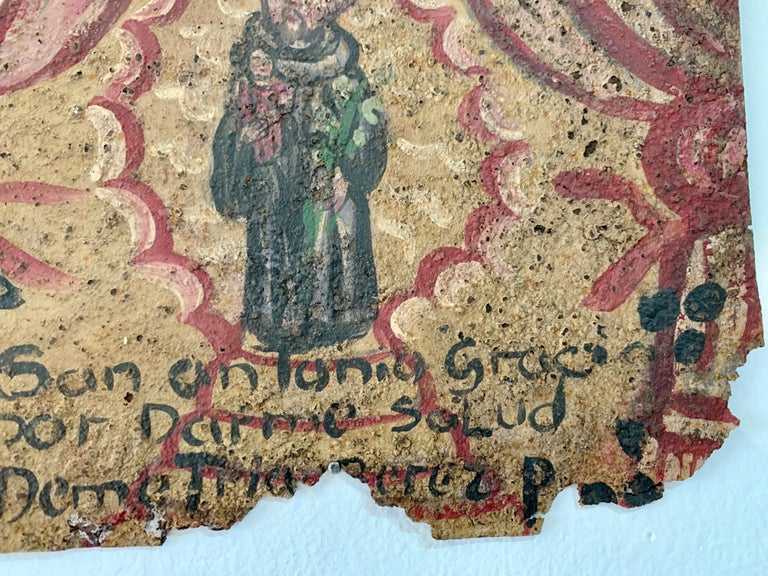 San antonio Gracias
por Darme SaLud
DemeTria Perez P.